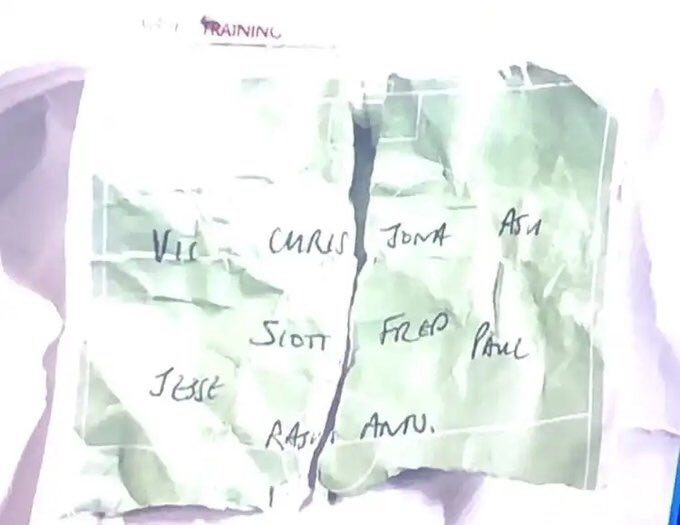 TRAINING
VIC CHRIS JONA ASH
SCOTT FRED PAUL
JESSE
ANTO.